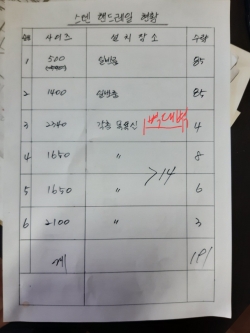 스텐 핸드레일 현황
순번 사이즈 설치장소 수량
1 500 일반층 85
2 1400 일반층 85
3 2340 각층 화장실 벽대벽 4
4 1650 〃 8
5 1650 〃 >14 6
6 2100 〃 3
계 191